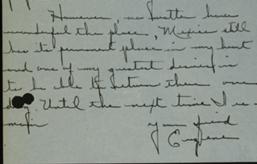 However no matter how
wonderful this place, Mexico still
has its permanent place in my heart
and one of my greatest desires is
to be able to return there some
day. Until the next time I
your friend
Eugene